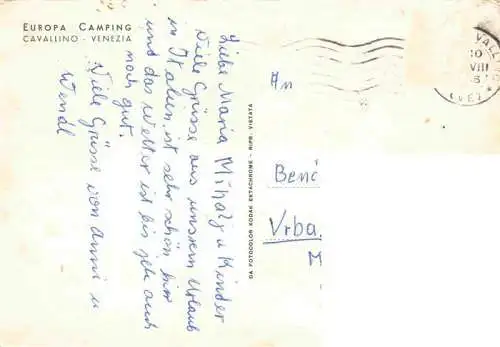 EUROPA CAMPING
CAVALLINO - VENEZIA
Liebe Maria Mihalj u Kinder
Viele Grüsse aus unserm Urlaub
in Italien, ist sehr schön hir
und das Wetter ist bis jetz auch
noch gut.
Viele Grüsse von Anni u
Wendl
DA FOTOCOLOR KODAK EKTACHROME - RIPR. VIETATA
VALL
10
VIII
(VE)
An
Benč
Vrba.
M